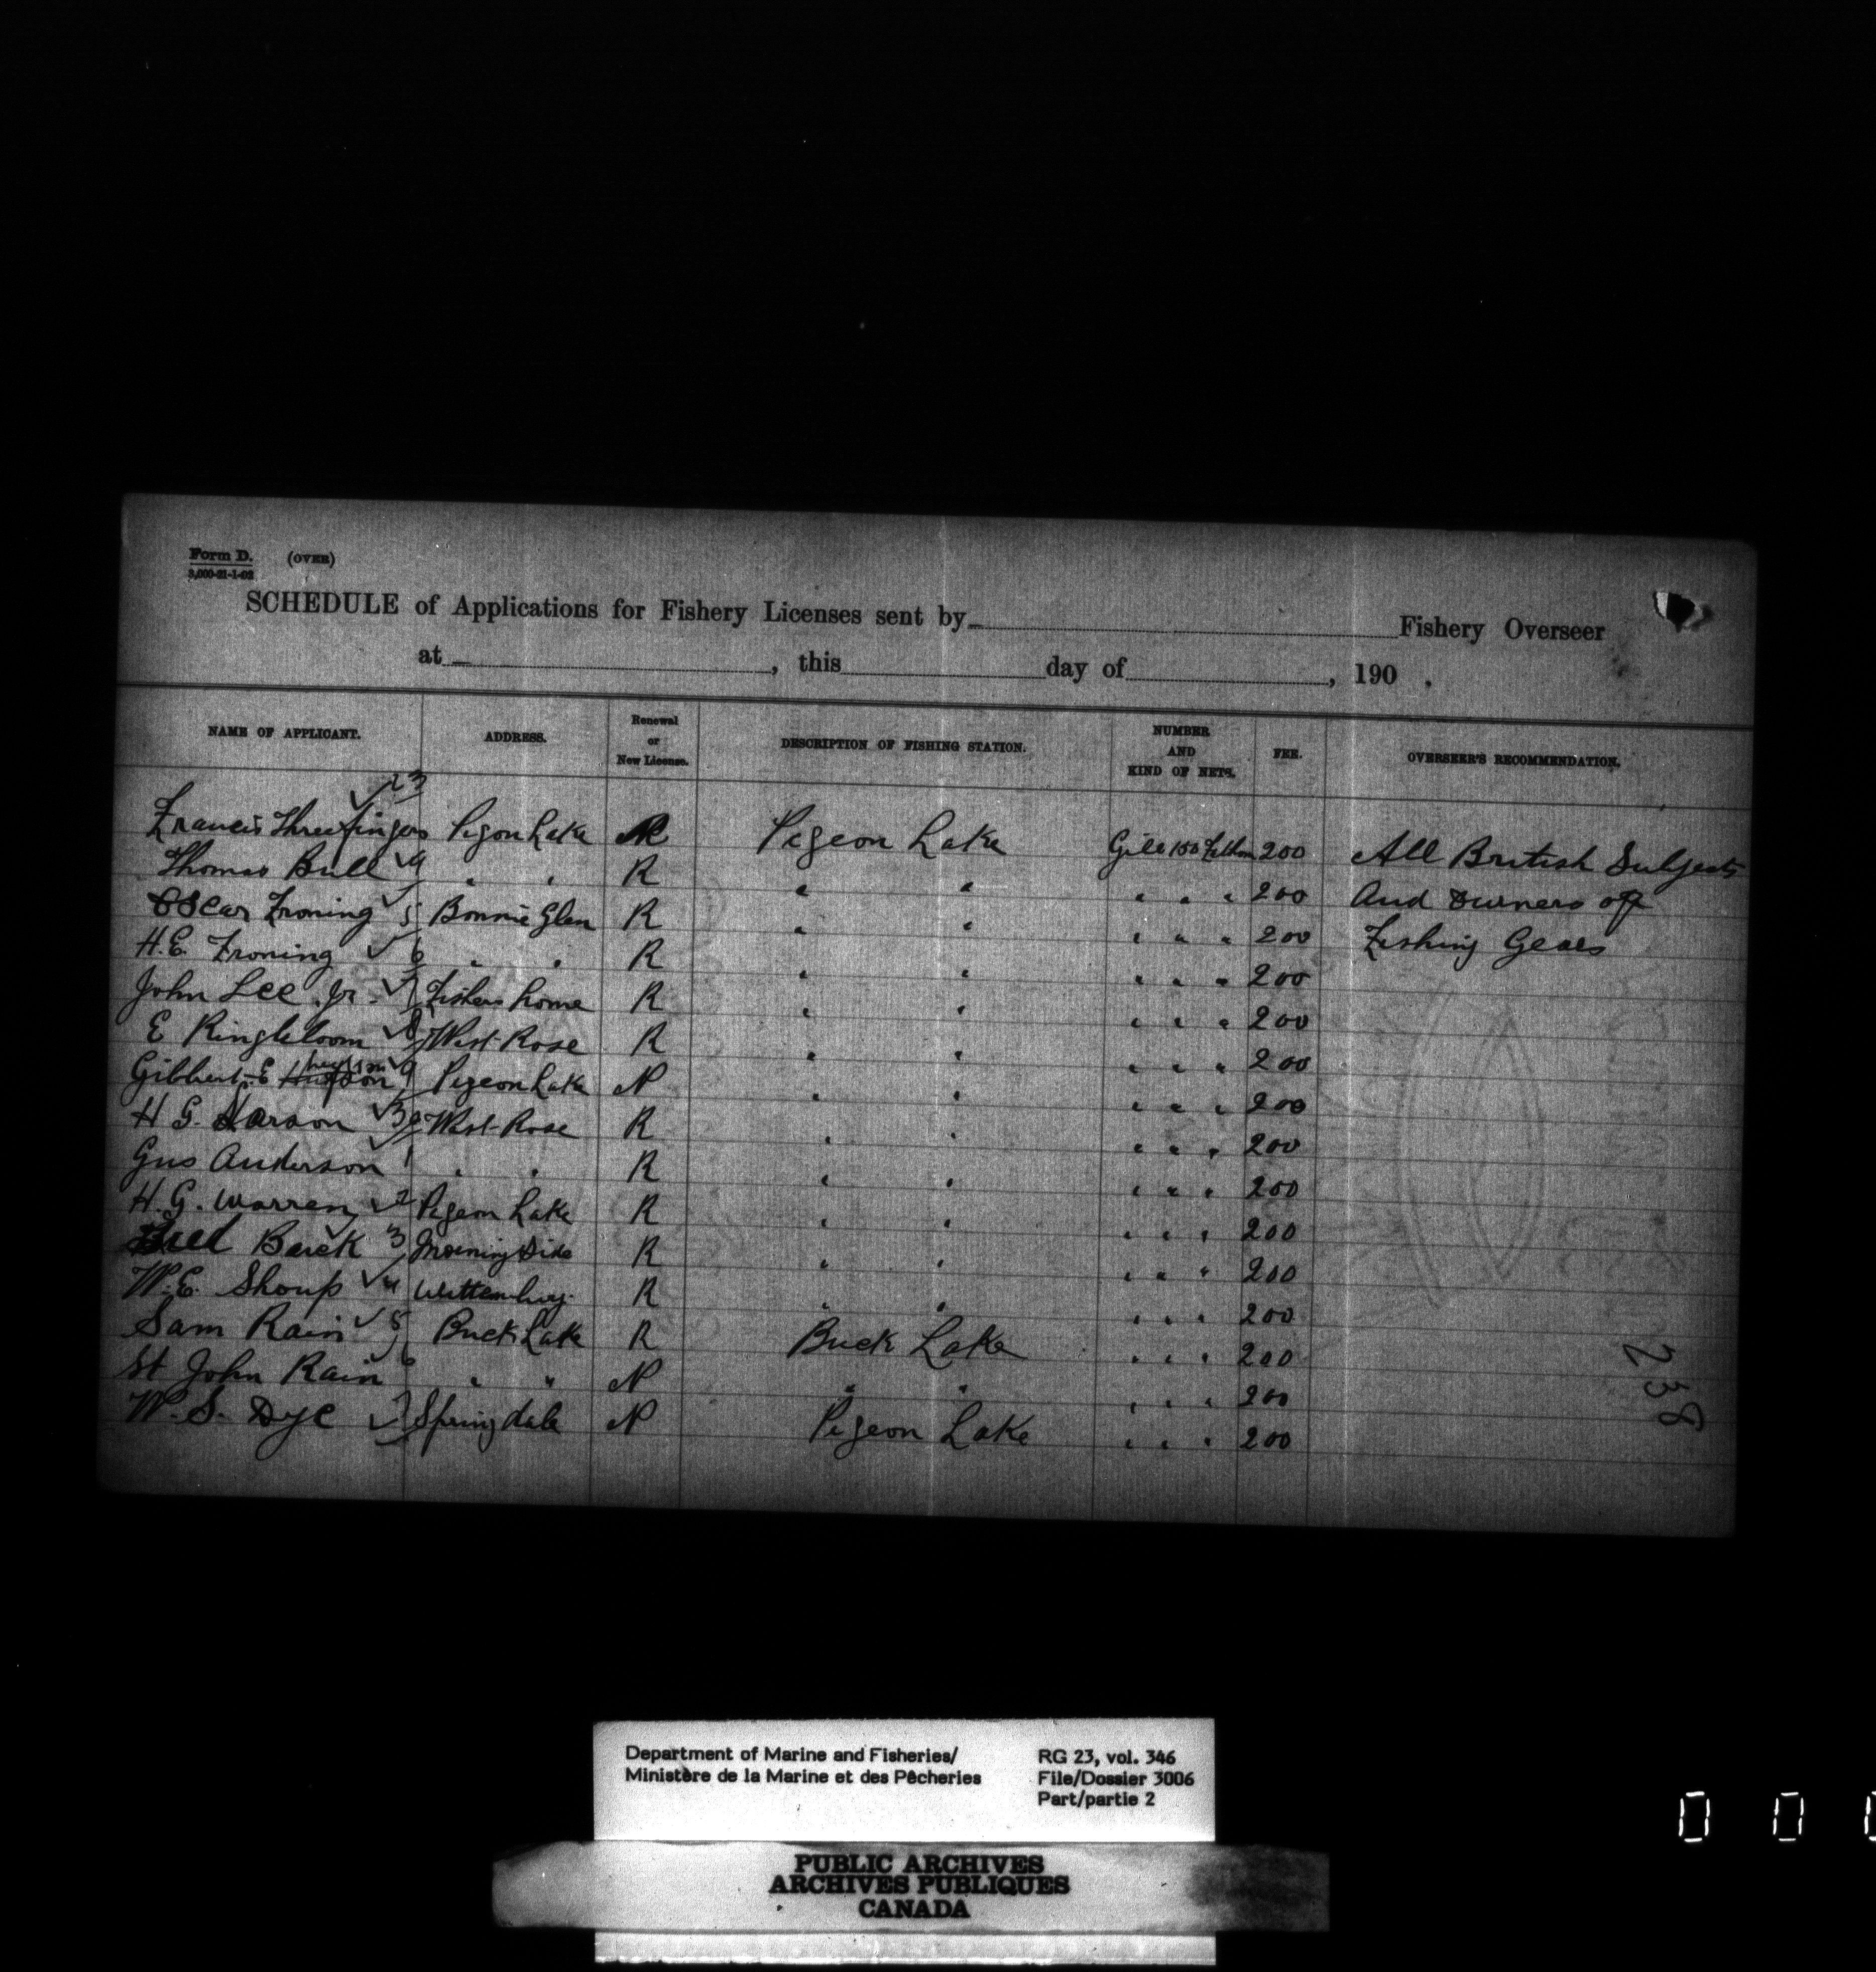 Form D. (OVER)
3,000-21-1-02
SCHEDULE of Applications for Fishery Licenses sent by Fishery Overseer
at , this day of , 190 .
NAME OF APPLICANT. ADDRESS. Renewal or New License. DESCRIPTION OF FISHING STATION. NUMBER AND KIND OF NETS. FEE. OVERSEER'S RECOMMENDATION.
Francis Threefingers 23 Pigon Lake R Pigeon Lake Gill 100 Fathom 200 All British Subjects
Thomas Bull 4 " " R " " " " " 200 And owners off
Oscar Froning 5 Bonnie Glen R " " " " " 200 Fishing Gears
H.E. Froning 6 " " R " " " " " 200
John Lee Jr. 7 Fishers home R " " " " " 200
E Ringbloom 8 West Rose R " " " " " 200
Gilbert E 9 Pigeon Lake N " " " " " 200
H G. Larson 30 West Rose R " " " " " 200
Gus Anderson 1 " " R " " " " " 200
H. G. Warren 2 Pigeon Lake R " " " " " 200
Fred Barck 3 Morningside R " " " " " 200
W.E. Shoup 4 Wittenburg. R " " " " " 200
Sam Rain 5 Buck Lake R Buck Lake " " " 200
St John Rain 6 " " N " " " " " 200
W. S. Dye 7 Springdale N Pigeon Lake " " " 200
238
Department of Marine and Fisheries/
Ministère de la Marine et des Pêcheries
RG 23, vol. 346
File/Dossier 3006
Part/partie 2
PUBLIC ARCHIVES
ARCHIVES PUBLIQUES
CANADA
0 0